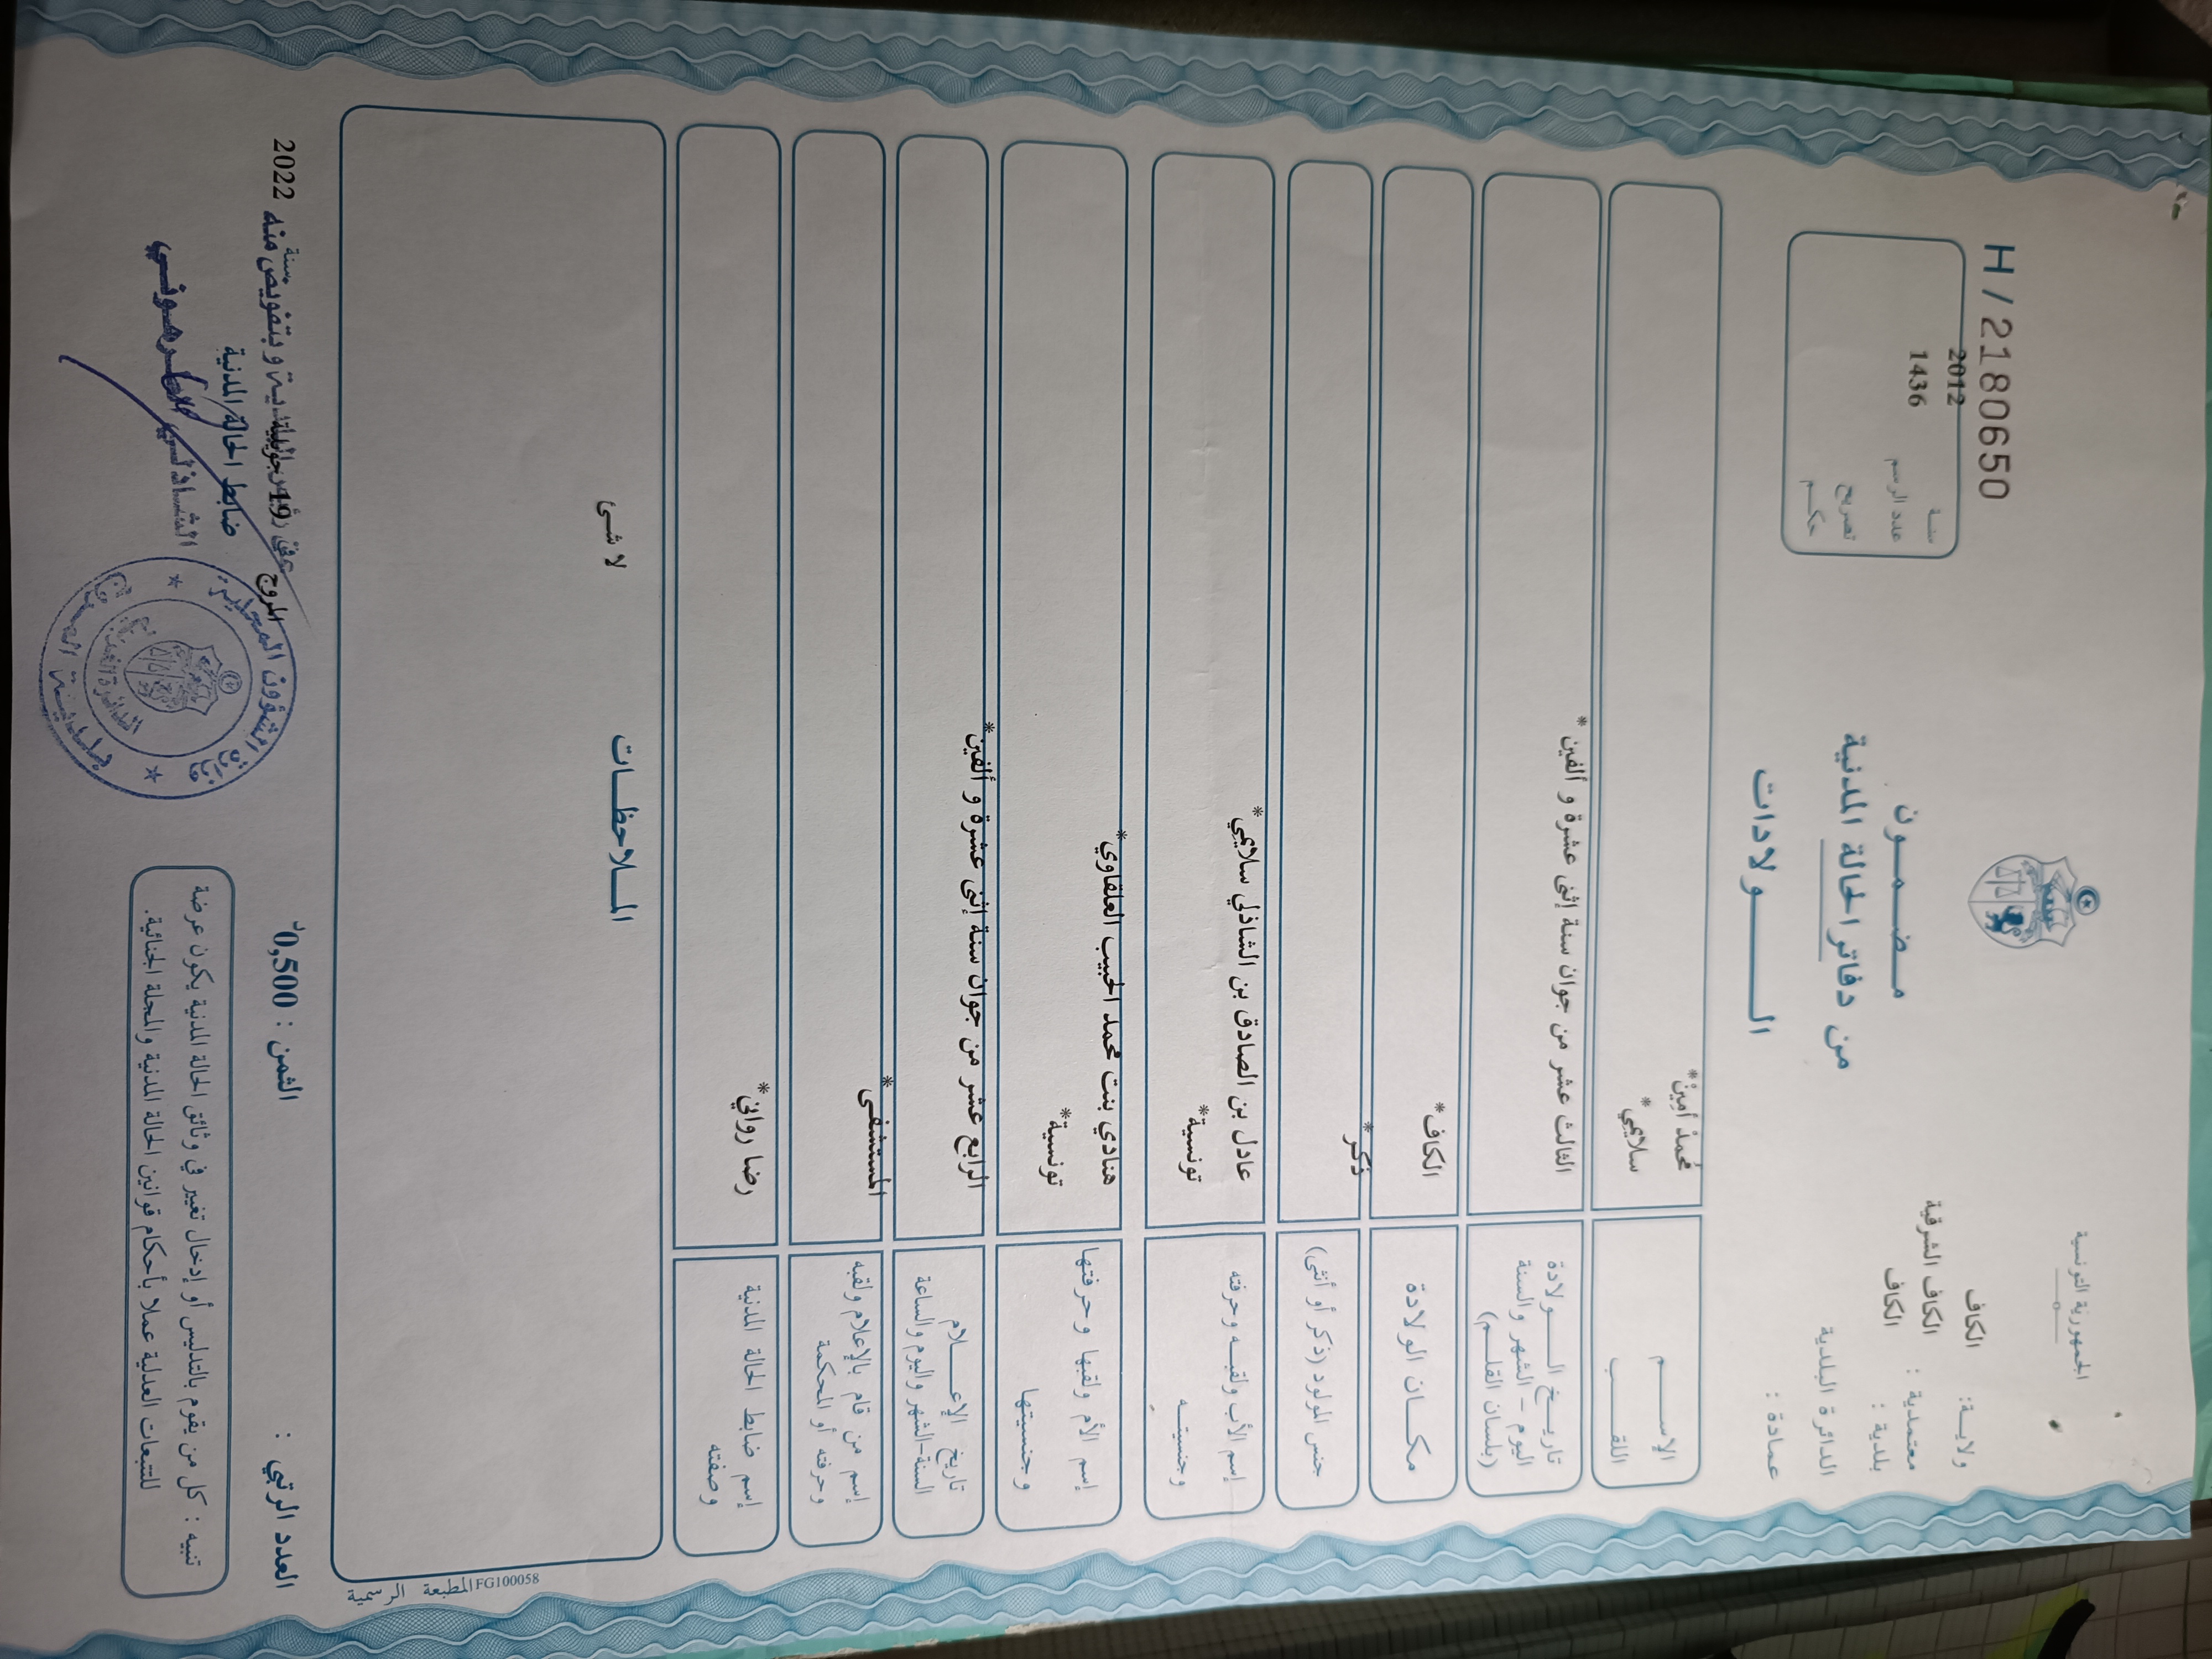 الجمهورية التونسية
ولاية: الكاف
معتمدية : الكاف الشرقية
بلدية : الكاف
الدائرة البلدية
عمادة :
H/2180650
سنة 2012
عدد الرسم 1436
تصريح
حكم
مضمون
من دفاتر الحالة المدنية
الولادات
الإسم
محمد أمين*
اللقب
سلايمي*
تاريخ الولادة
اليوم - الشهر والسنة
(بلسان القلم)
الثالث عشر من جوان سنة إثنى عشرة و ألفين *
مكان الولادة
الكاف*
جنس المولود (ذكر أو أنثى)
ذكر*
إسم الأب ولقبه وحرفته
وجنسيته
عادل بن الصادق بن الشاذلي سلايمي*
تونسية*
إسم الأم ولقبها وحرفتها
وجنسيتها
هنادي بنت محمد الحبيب العلقاوي*
تونسية*
تاريخ الإعلام
السنة-الشهر واليوم والساعة
الرابع عشر من جوان سنة إثنى عشرة و ألفين*
إسم من قام بالإعلام ولقبه
وحرفته أو المحكمة
المستشفى*
إسم ضابط الحالة المدنية
وصفته
رضا رواني*
الملاحظات
لا شئ
المطبعة الرسمية FG100058
العدد الرتبي :
الثمن : 0,500د
المروج في 19 جويلية سنة 2022
وبتفويض منه
ضابط الحالة المدنية
الشاذلي
تنبيه : كل من يقوم بالتدليس أو إدخال تغيير في وثائق الحالة المدنية يكون عرضة
للتتبعات العدلية عملا بأحكام قوانين الحالة المدنية والمجلة الجنائية.